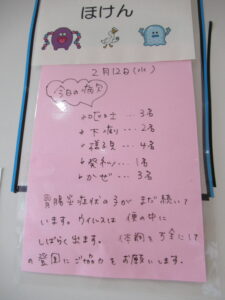 ほけん
2月12日(水)
今日の病欠
・嘔吐 … 3名
・下痢 … 2名
・様子見 … 4名
・発熱 … 1名
・かぜ … 3名
胃腸炎症状の子がまだ続いて
います。ウイルスは便の中に
しばらく出ます。 体調を万全にして
の登園にご協力をお願いします。